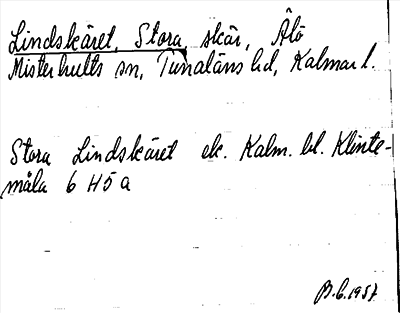 Lindskäret, Stora, skär, Älö
Misterhults sn, Tunaläns hd, Kalmar l.
Stora Lindskäret ek. Kalm. bl. Klinte-
måla 6 H 5 a
B.G. 1957